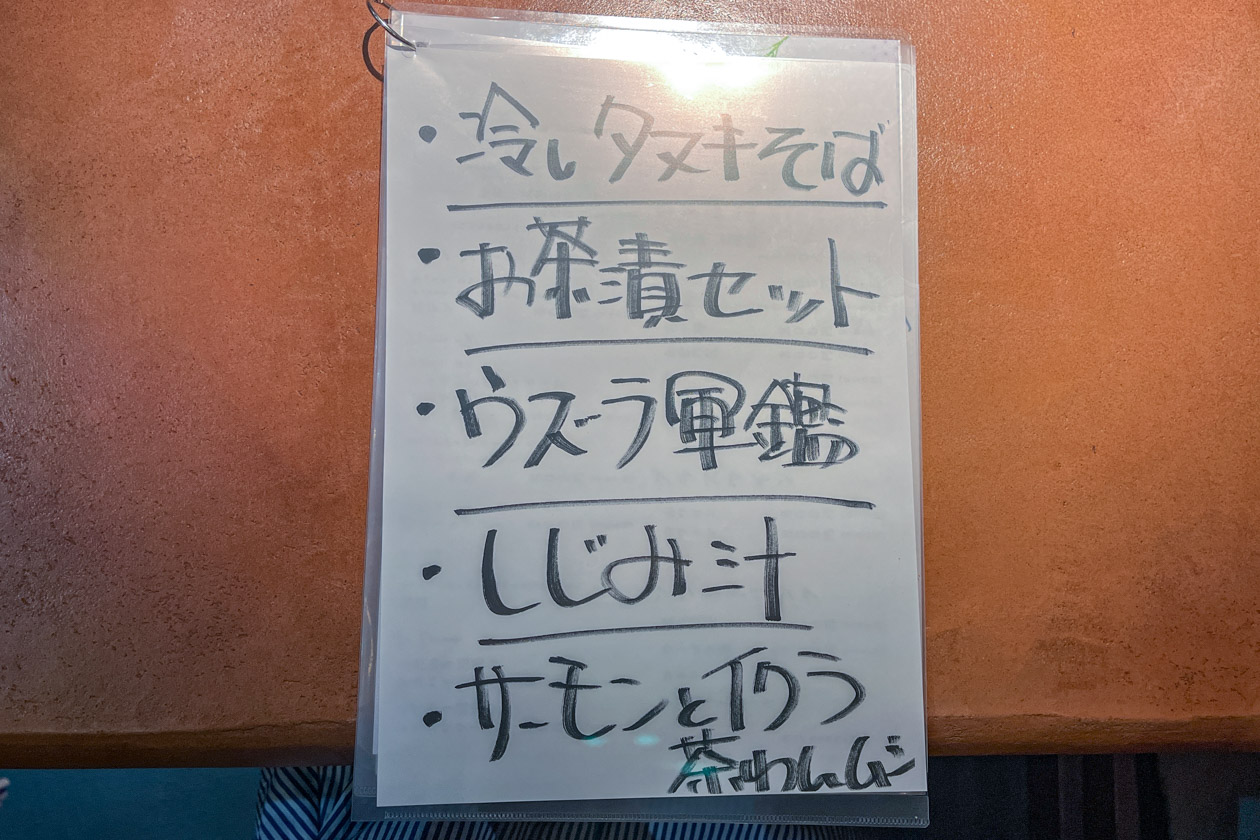 ・冷しタヌキそば
・お茶漬セット
・ウズーラ軍鑑
・しじみ汁
・サーモンとイクラ
茶わんムシ